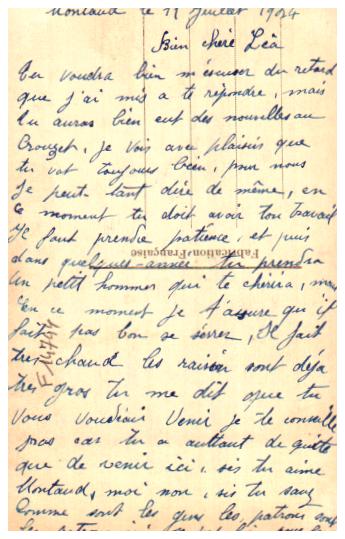 Montaud le 11 Juillet 1924
Bien chère Léa
Tu voudra bien m'escuser du retard
que j'ai mis a te répondre, mais
tu auras bien eut des nouvelles au
Crouzet, je vois avec plaisirs que
tu vat toujours bien, pour nous
je peut tant dire de même, en
ce moment tu doit avoir ton travail
Il faut prendre patience, et puis
Fabrication Française
dans quelques année tu prendra
un petit hommer qui te chérira, mais
En ce moment je t'assure qu'il
fait pas bon se serrer, Il fait
tres chaud les raisin sont déjà
F 14744
tres gros tu me dit que tu
vous voudrair venir je te conseille
pas car tu a auttant de quite
que de venir ici, sis tu aime
Montaud, moi non, sis tu savz
Comme sont les gens les patrons sont